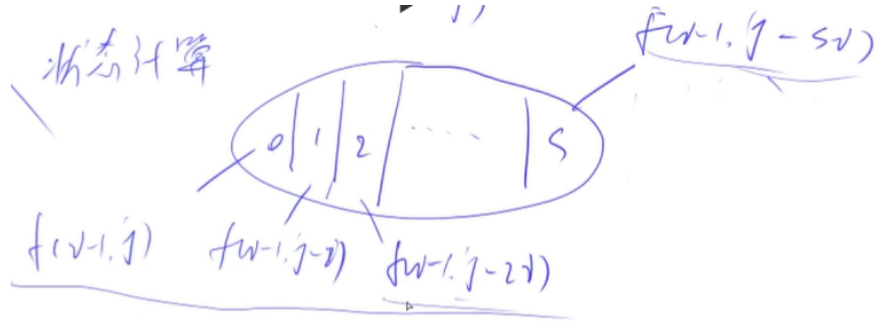 状态计算
f(i-1, j-sv)
0 1 2 ···· s
f(i-1, j)
f(i-1, j-v)
f(i-1, j-2v)